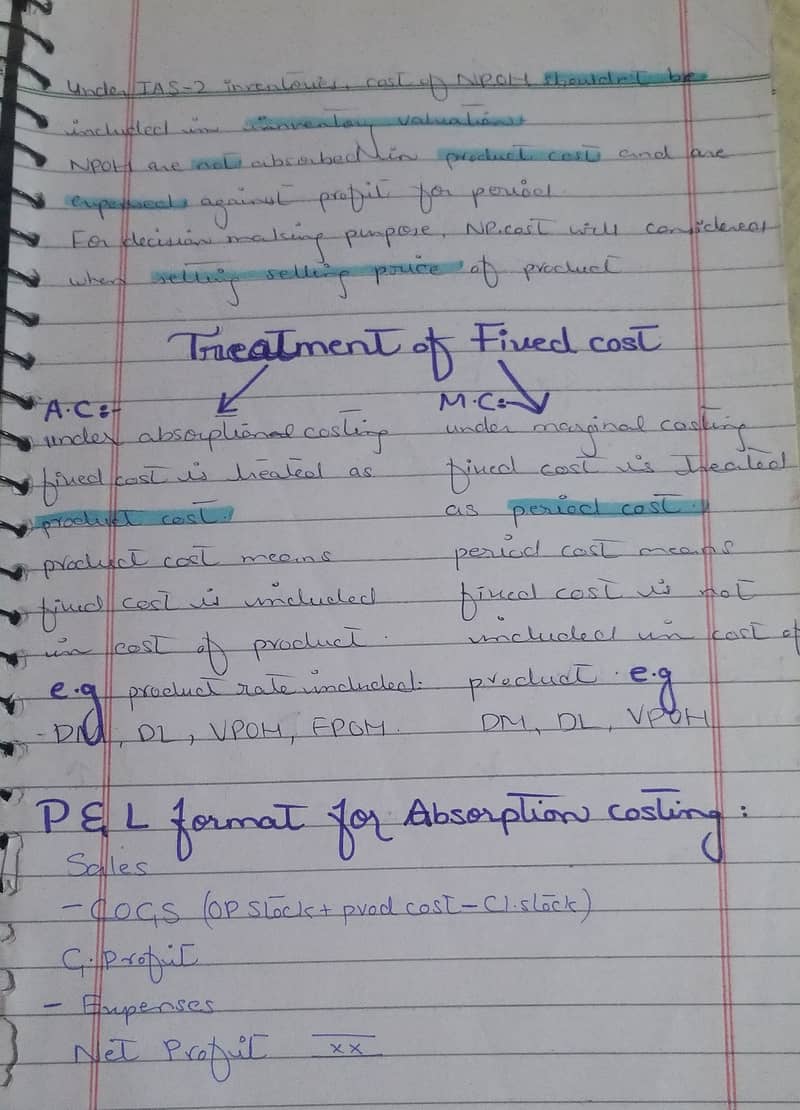 Under IAS-2 inventories, cost of NPOH shouldn't be
included in inventory valuation
NPOH are not absorbed in product cost and are
expensed against profit for period.
For decision making purpose, NP.cost will considered
when selling selling price of product
Treatment of Fixed cost
A.C:-
under absorptional costing
fixed cost is treated as
product cost.
product cost means
fixed cost is included
in cost of product.
e.g product rate included:
- DM, DL, VPOH, FPOH.
M.C:-
under marginal costing
fixed cost is treated
as period cost.
period cost means
fixed cost is not
included in cost of
product. e.g
DM, DL, VPOH
P & L format for Absorption costing:
Sales
- COGS (OP stock + prod cost - Cl. stock)
G. Profit
- Expenses
Net Profit xx